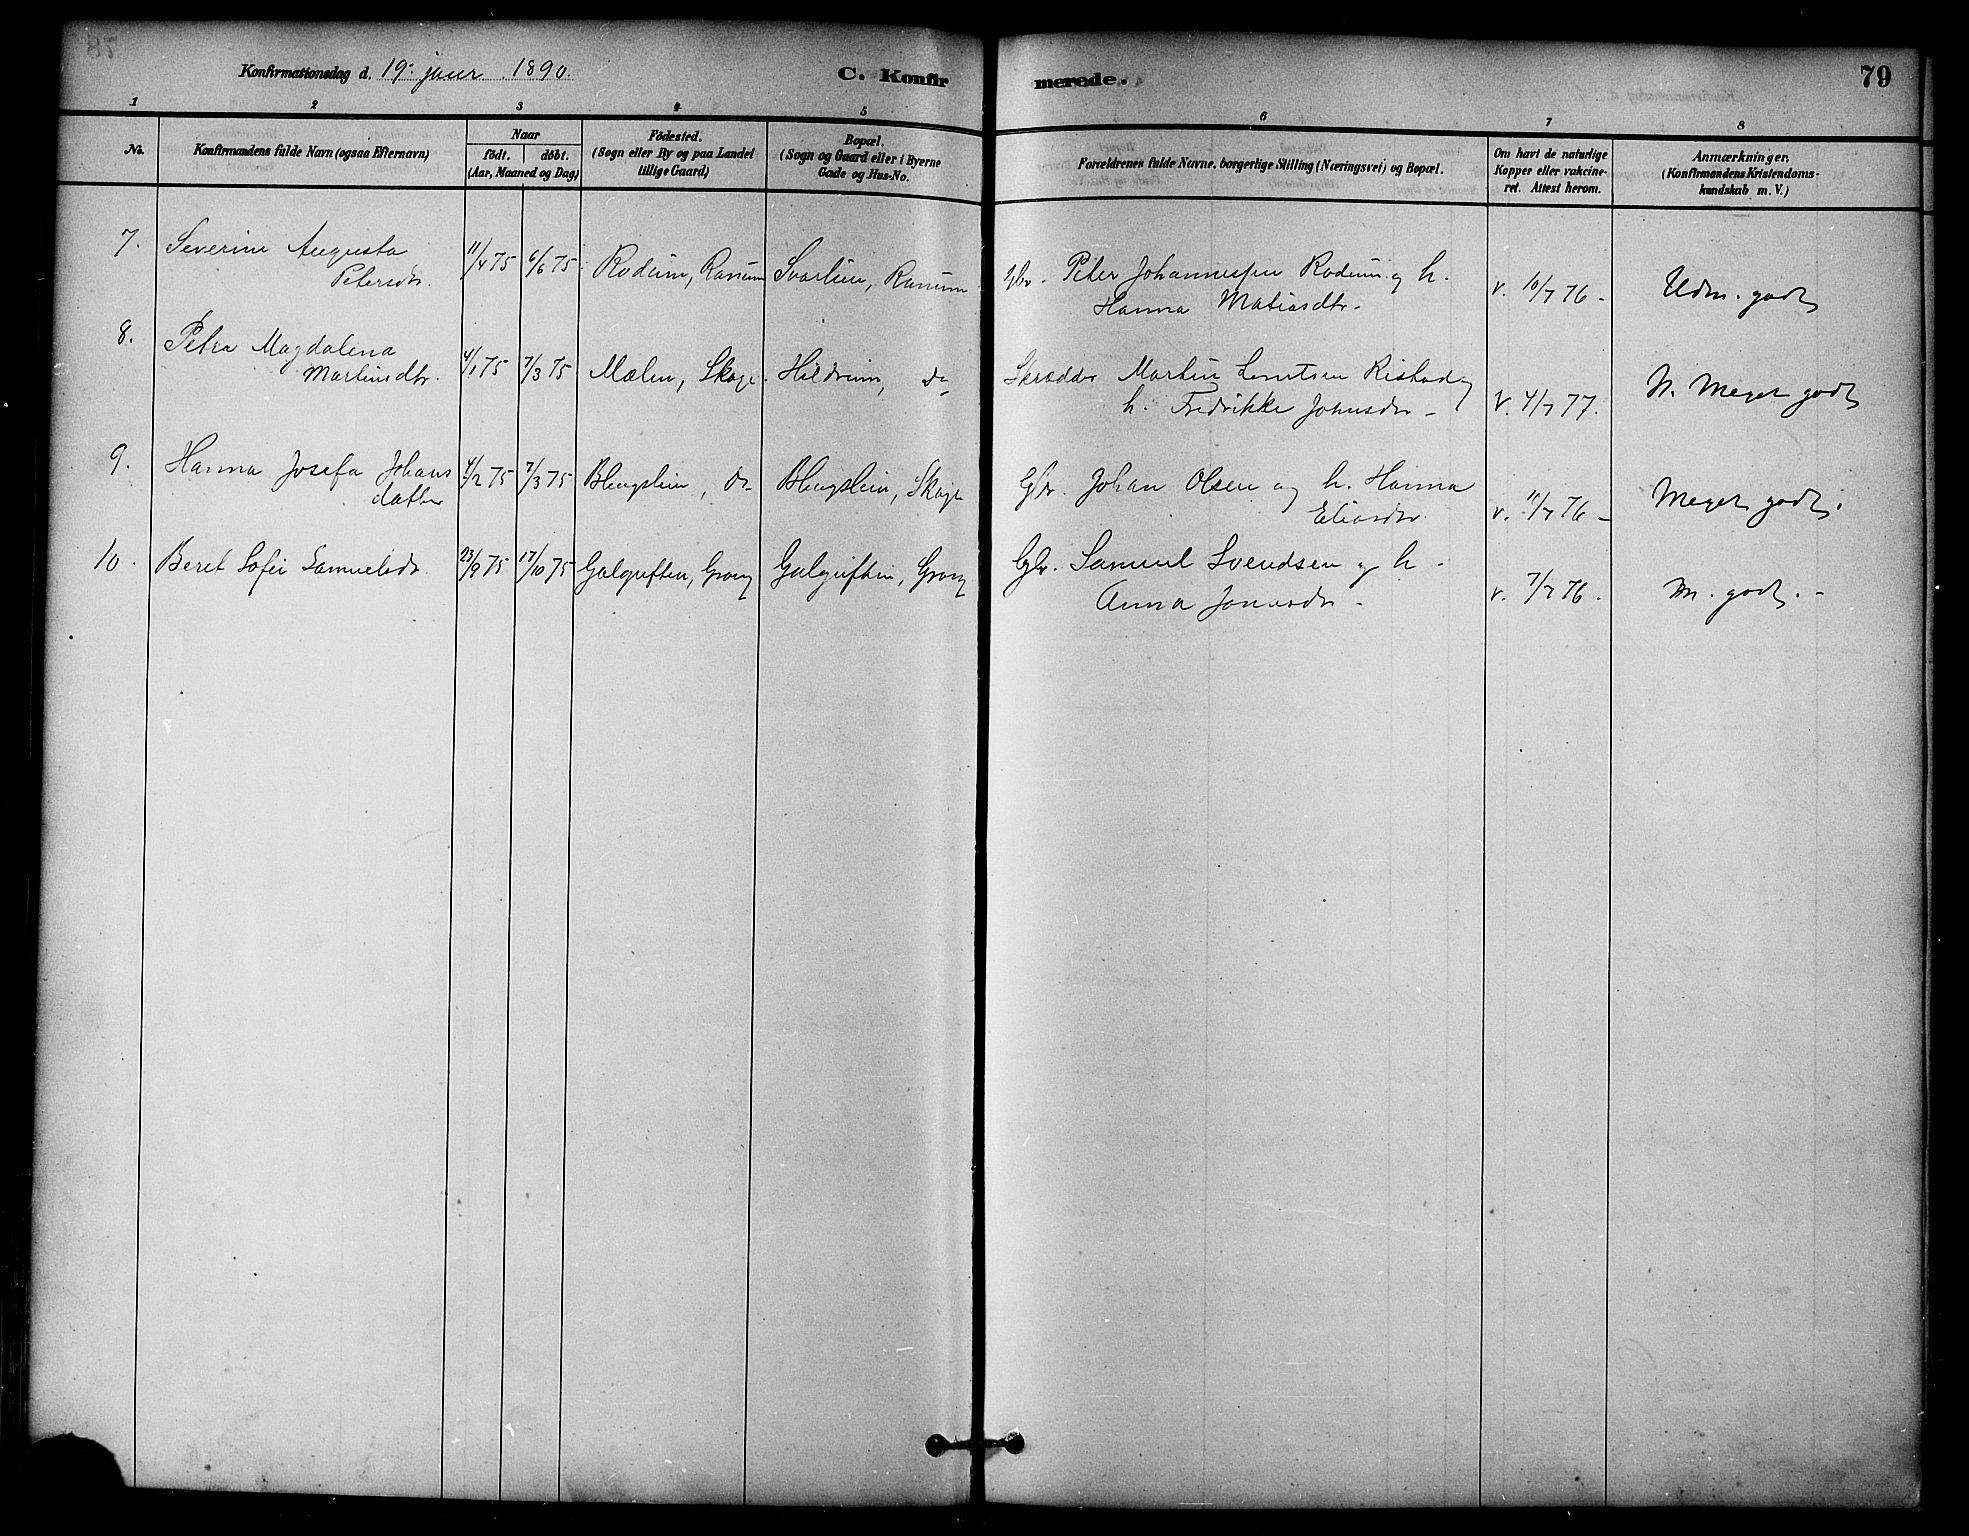 Konfirmationsdag d. 19. januar 1890.
C. Konfirmerede.
79
1 2 3 4 5 6 7 8
No.
Konfirmandens fulde Navn (ogsaa Efternavn)
Naar
födt. döbt.
(Aar, Maaned og Dag)
Födested.
(Sogn eller By og paa Landet
tillige Gaard)
Bopæl.
(Sogn og Gaard eller i Byerne
Gade og Hus-No.
Forældrenes fulde Navne, borgerlige Stilling (Næringsvei) og Bopæl.
Om havt de naturlige
Kopper eller vakcine-
ret. Attest herom.
Anmærkninger.
(Konfirmandens Kristendoms-
kundskab m. V.)
7. Severine Augusta 11/4 75 6/6 75 Rodum, Ranum Svartlien, Ranum Gbr. Peter Johannessen Rodum og h. v. 10/7 76 - Udm. godt
Petersdtr. Hanna Matiasdtr.
8. Petra Magdalena 4/1 75 7/3 75 Mælen, Skage Hildrum, do Skrædder Martin Risstad og V. 4/7 77. N. Meget godt
Martinsdtr. h. Fredrikke Johnsdr -
9. Hanna Josefa Johans 4/2 75 7/3 75 do Skage Gbr. Johan Olsen og h. Hanna v. 11/7 76 - Meget godt.
datter Eliasdtr.
10. Beret Sofie Samuelsdr. 23/9 75 17/10 75 Galguften, Grong Galguften, Grong Gbr. Samuel Svendsen og h - v. 7/7 76. M. godt. -
Anna Jonasdr -